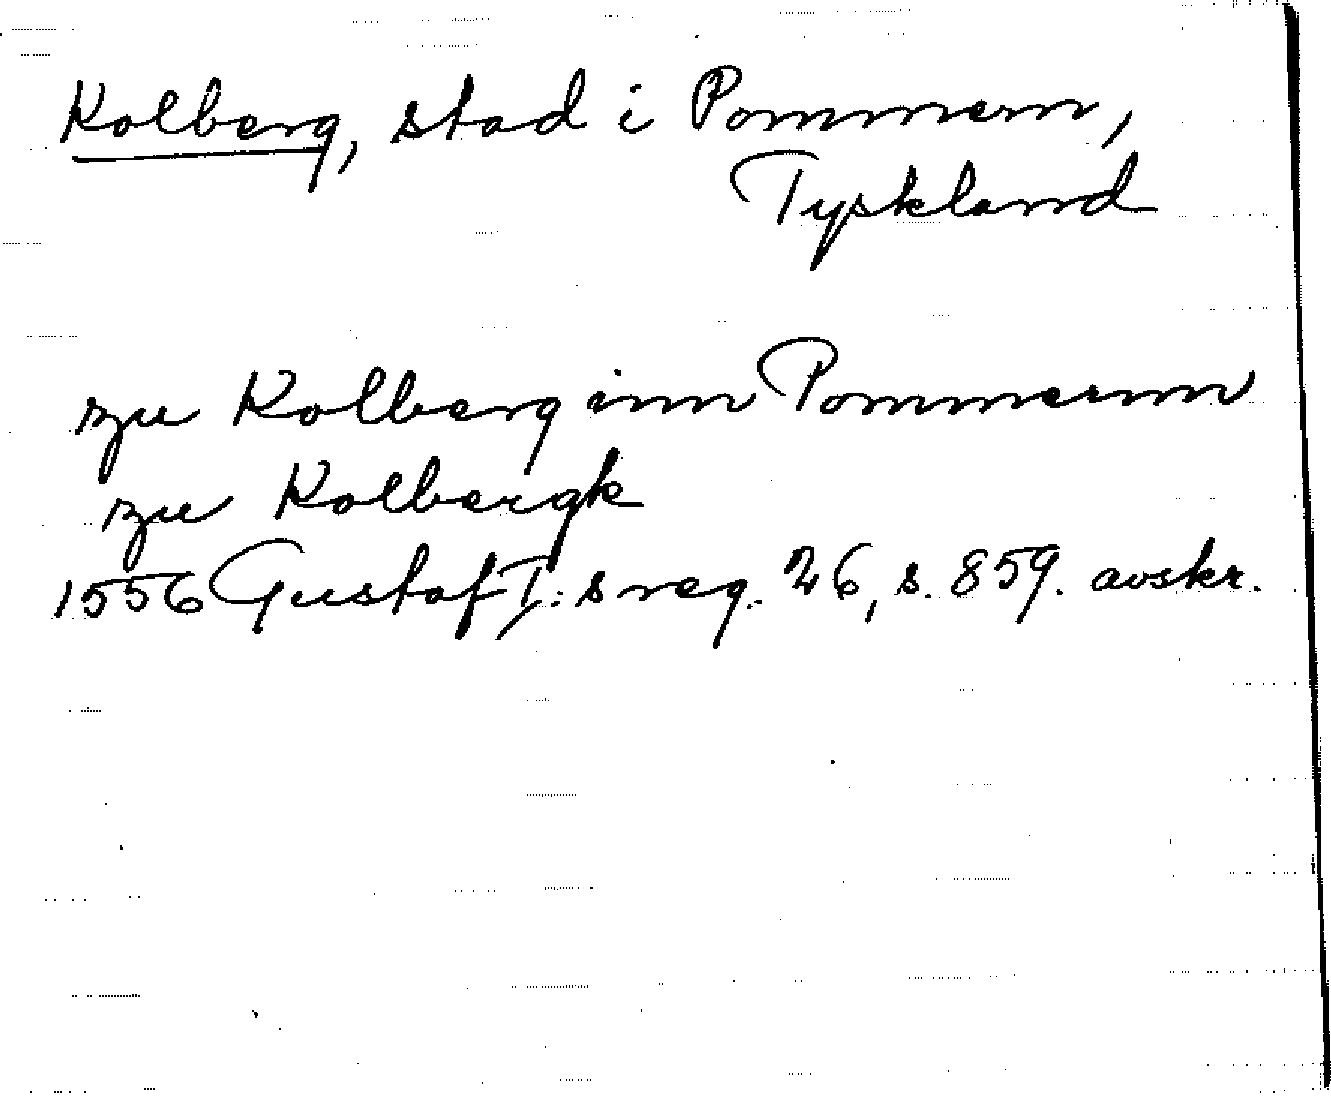 Kolberg, stad i Pommern,
Tyskland
zu Kolberg inn Pommernn
zu Kolbergk
1556 Gustaf I:s reg. 26, s. 859. avskr.